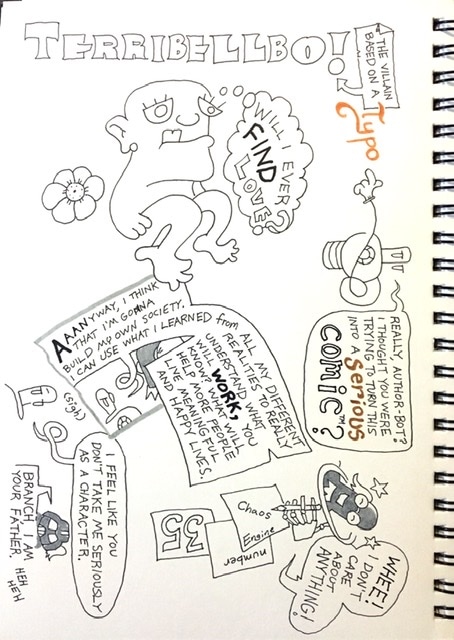 TERRIBELLBO!
THE VILLAIN
BASED ON A
Typo
WILL I EVER
FIND
LOVE?
REALLY, AUTHOR-BOT?
I THOUGHT YOU WERE
TRYING TO TURN THIS
INTO A serious
comic™?
AAANYWAY, I THINK
THAT I'M GONNA
BUILD MY OWN SOCIETY.
I CAN USE WHAT I LEARNED from
ALL MY DIFFERENT
REALITIES TO REALLY
UNDERSTAND WHAT
WILL WORK, YOU
KNOW? WHAT WILL
HELP MORE PEOPLE
LIVE MEANINGFUL
AND HAPPY LIVES.
WHEE! I
DON'T
CARE
ABOUT
ANYTHING!
Chaos
Engine
number
35
(sigh)
I FEEL LIKE YOU
DON'T TAKE ME SERIOUSLY
AS A CHARACTER.
BRANCH, I AM
YOUR FATHER. HEH
HEH